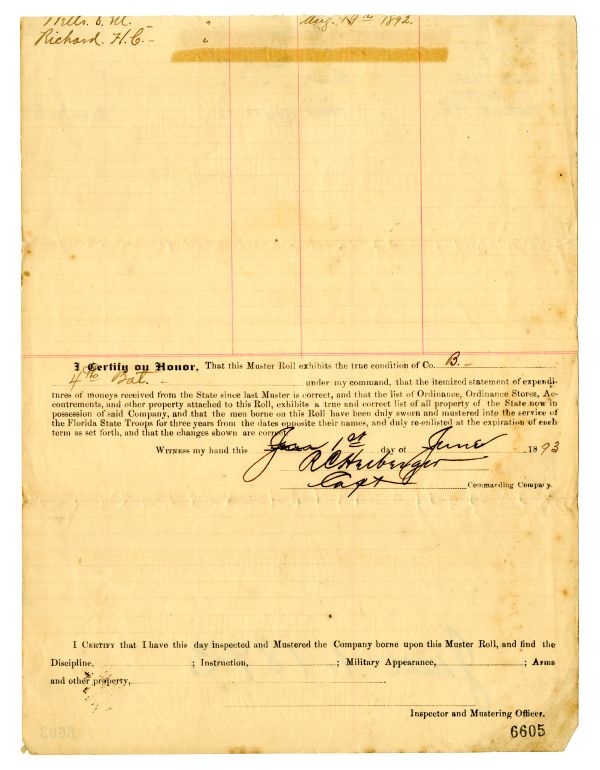 Wells. E. M. " Aug. 19th 1892.
Richard. H. C. - "
I Certify on Honor, That this Muster Roll exhibits the true condition of Co. B. -
4th Bat. - under my command, that the itemized statement of expendi-
tures of moneys received from the State since last Muster is correct, and that the list of Ordinance, Ordinance Stores, Ac-
coutrements, and other property attached to this Roll, exhibits a true and correct list of all property of the State now in
possession of said Company, and that the men borne on this Roll have been duly sworn and mustered into the service of
the Florida State Troops for three years from the dates opposite their names, and duly re-enlisted at the expiration of each
term as set forth, and that the changes shown are correct.
Witness my hand this 1st day of June 1893
Capt
Commanding Company.
I Certify that I have this day inspected and Mustered the Company borne upon this Muster Roll, and find the
Discipline, ; Instruction, ; Military Appearance, ; Arms
and other property,
Inspector and Mustering Officer.
6605